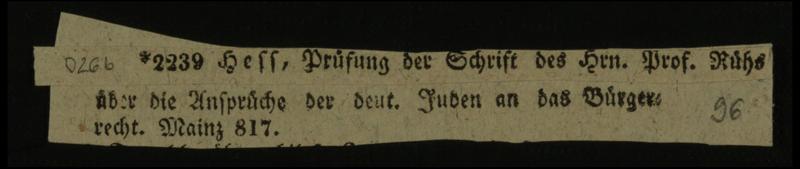 026b *2239 Hess, Prüfung der Schrift des Hrn. Prof. Rühs
über die Ansprüche der deut. Juden an das Bürger-
recht. Mainz 817.
96